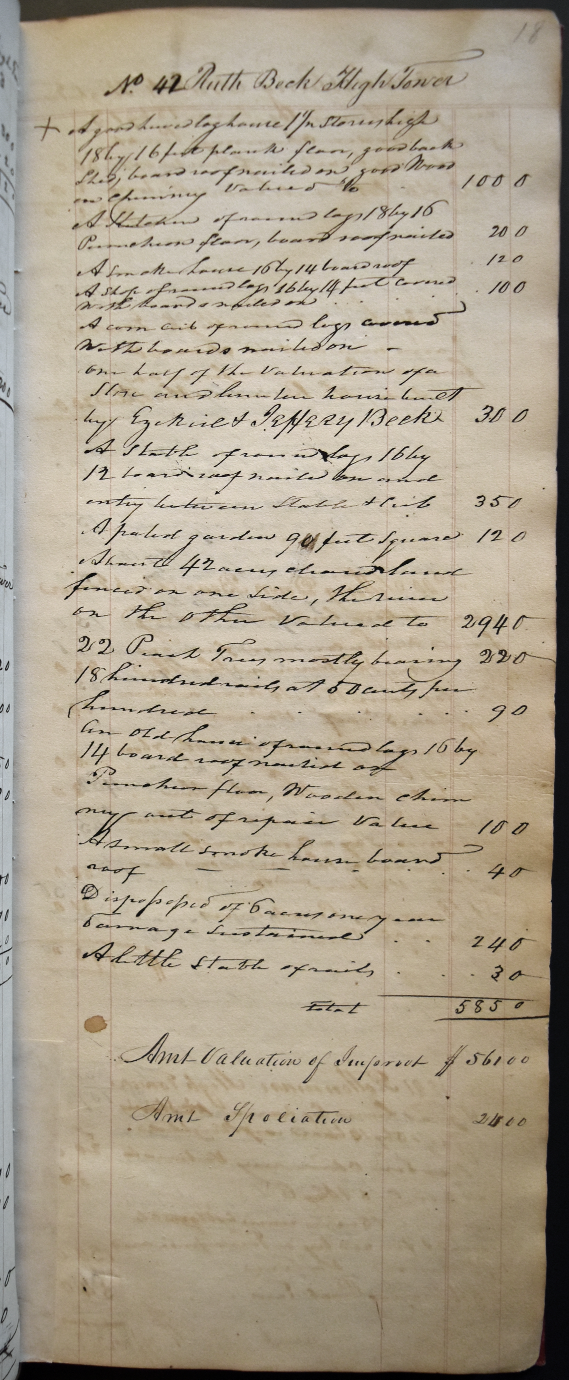 18
No 42 Ruth Beck High Tower
+ A good hewed log house 1 1/2 Stories high
18 by 16 feet plank floor, good back
Shed, board roof nailed on, good Wood
on chimney Valued to 100 0
A Kitchen of round logs 18 by 16
Puncheon floor, board roof nailed 20 0
A smoke house 16 by 14 board roof 12 0
A Shop of round logs 16 by 14 feet covered 10 0
with boards nailed on
A corn crib of round logs covered
with boards nailed on
one half of the Valuation of a
Store and house built
by Ezekiel & Jeffery Beck 30 0
A Stable of round logs 16 by
12 board roof nailed on and
entry between Stable & Crib 35 0
A paled garden 90 feet Square 12 0
About 42 acres cleared land
fenced on one side, the river
on the other Valued to 294 0
22 Peach Trees mostly bearing 22 0
18 hundred rails at 50 cents per
hundred 9 0
An old house of round logs 16 by
14 board roof nailed on
Puncheon floor, Wooden chim
ney out of repair Value 10 0
A small smoke house board
roof 4 0
Dispossessed of 6 acres one year
Damage Sustained 24 0
A little Stable of rails 3 0
Total 585 0
Amt Valuation of Improvt $ 561 00
Amt Spoliation 24 00